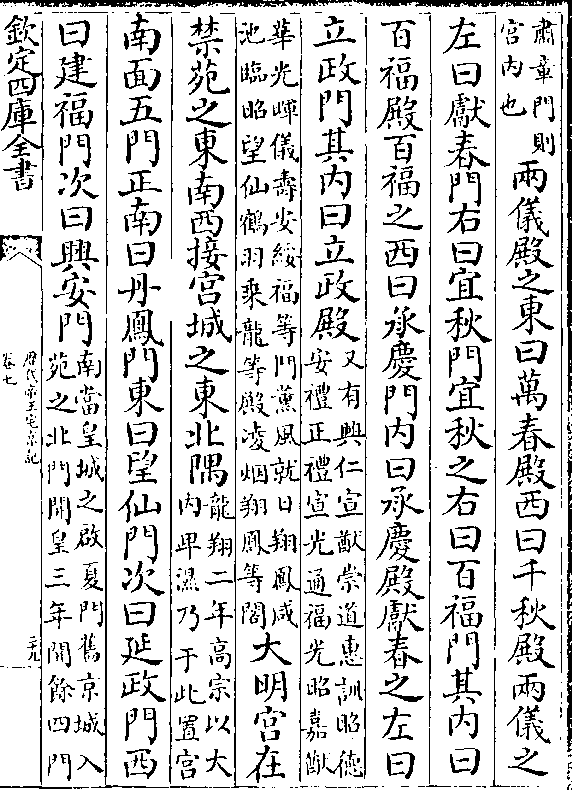 肅章門則
宮内也
兩儀殿之東曰萬春殿西曰千秋殿兩儀之
左曰獻春門右曰宜秋門宜秋之右曰百福門其内曰
百福殿百福之西曰承慶門内曰承慶殿獻春之左曰
立政門其内曰立政殿
又有興仁宣猷崇道惠訓昭德
安禮正禮宣光通福光昭嘉猷
華光暉儀壽安綏福等門薰風就日翔鳳咸
池臨昭望仙鶴羽乘龍等殿凌烟翔鳳等閣
大明宮在
禁苑之東南西接宮城之東北隅
龍翔二年高宗以大
内卑濕乃于此置宮
南面五門正南曰丹鳳門東曰望仙門次曰延政門西
曰建福門次曰興安門
南當皇城之啟夏門舊京城入
苑之北門開皇三年開餘四門
欽定四庫全書
歷代帝王宅京記
卷七
二十九